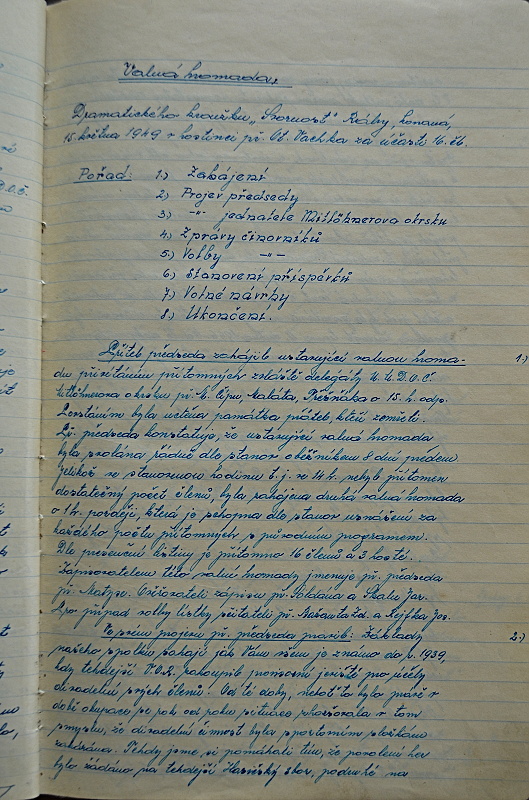 Valná hromada,
Dramatického kroužku „Svornost" Ráby, konaná,
15. května 1949 v hostinci př. Ot. Vachka za účasti 16. čl.
Pořad: 1.) Zahájení
2.) Projev předsedy
3.) -"- jednatele Mitlöhnerova okrsku
4.) Zprávy činovníků
5.) Volby -"-
6.) Stanovení příspěvků
7.) Volné návrhy
8.) Ukončení.
předseda zahájil ustavující valnou hroma- 1.)
du přivítáním přítomných zvláště delegáty Ú.M.D.O.Č.
okrsku př. o 15. h. odp.
Povstáním byla uctěna památka přátel, kteří zemřeli.
Př. předseda konstatuje, že ustavující valná hromada
byla svolána řádně dle stanov oběžníkem 8 dní předem
Jelikož ve stanovenou hodinu t.j. ve 14 h. nebyl přítomen
dostatečný počet členů, byla zahájena druhá valná hromada
o 1 h. později, která je schopna dle stanov usnášení za
každého počtu přítomných s původním programem.
Dle presenční listiny je přítomno 16 členů a 3 hosté.
Zapisovatelem této valné hromady jmenuje př. předseda
př. Matyse. Ověřovateli zápisu př. a Skalu Jar.
Pro případ volby lístky sčitateli př. a Rejfka Jos.
Ve svém projevu př. předseda pravil: Základy 2.)
našeho spolku sahají jak Vám všem je známo do r. 1939,
kdy tehdejší zakoupil pro účely
divadelní svých členů. Od té doby, nekotěto byla právě v
době okupace se rok od roku situace zhoršovala v tom
smyslu, že divadelní činnost byla sportovním složkám
zakázána. Tehdy jsme si pomáhali tím, že povolení her
bylo žádáno na tehdejší Hasičský sbor, podruhé na